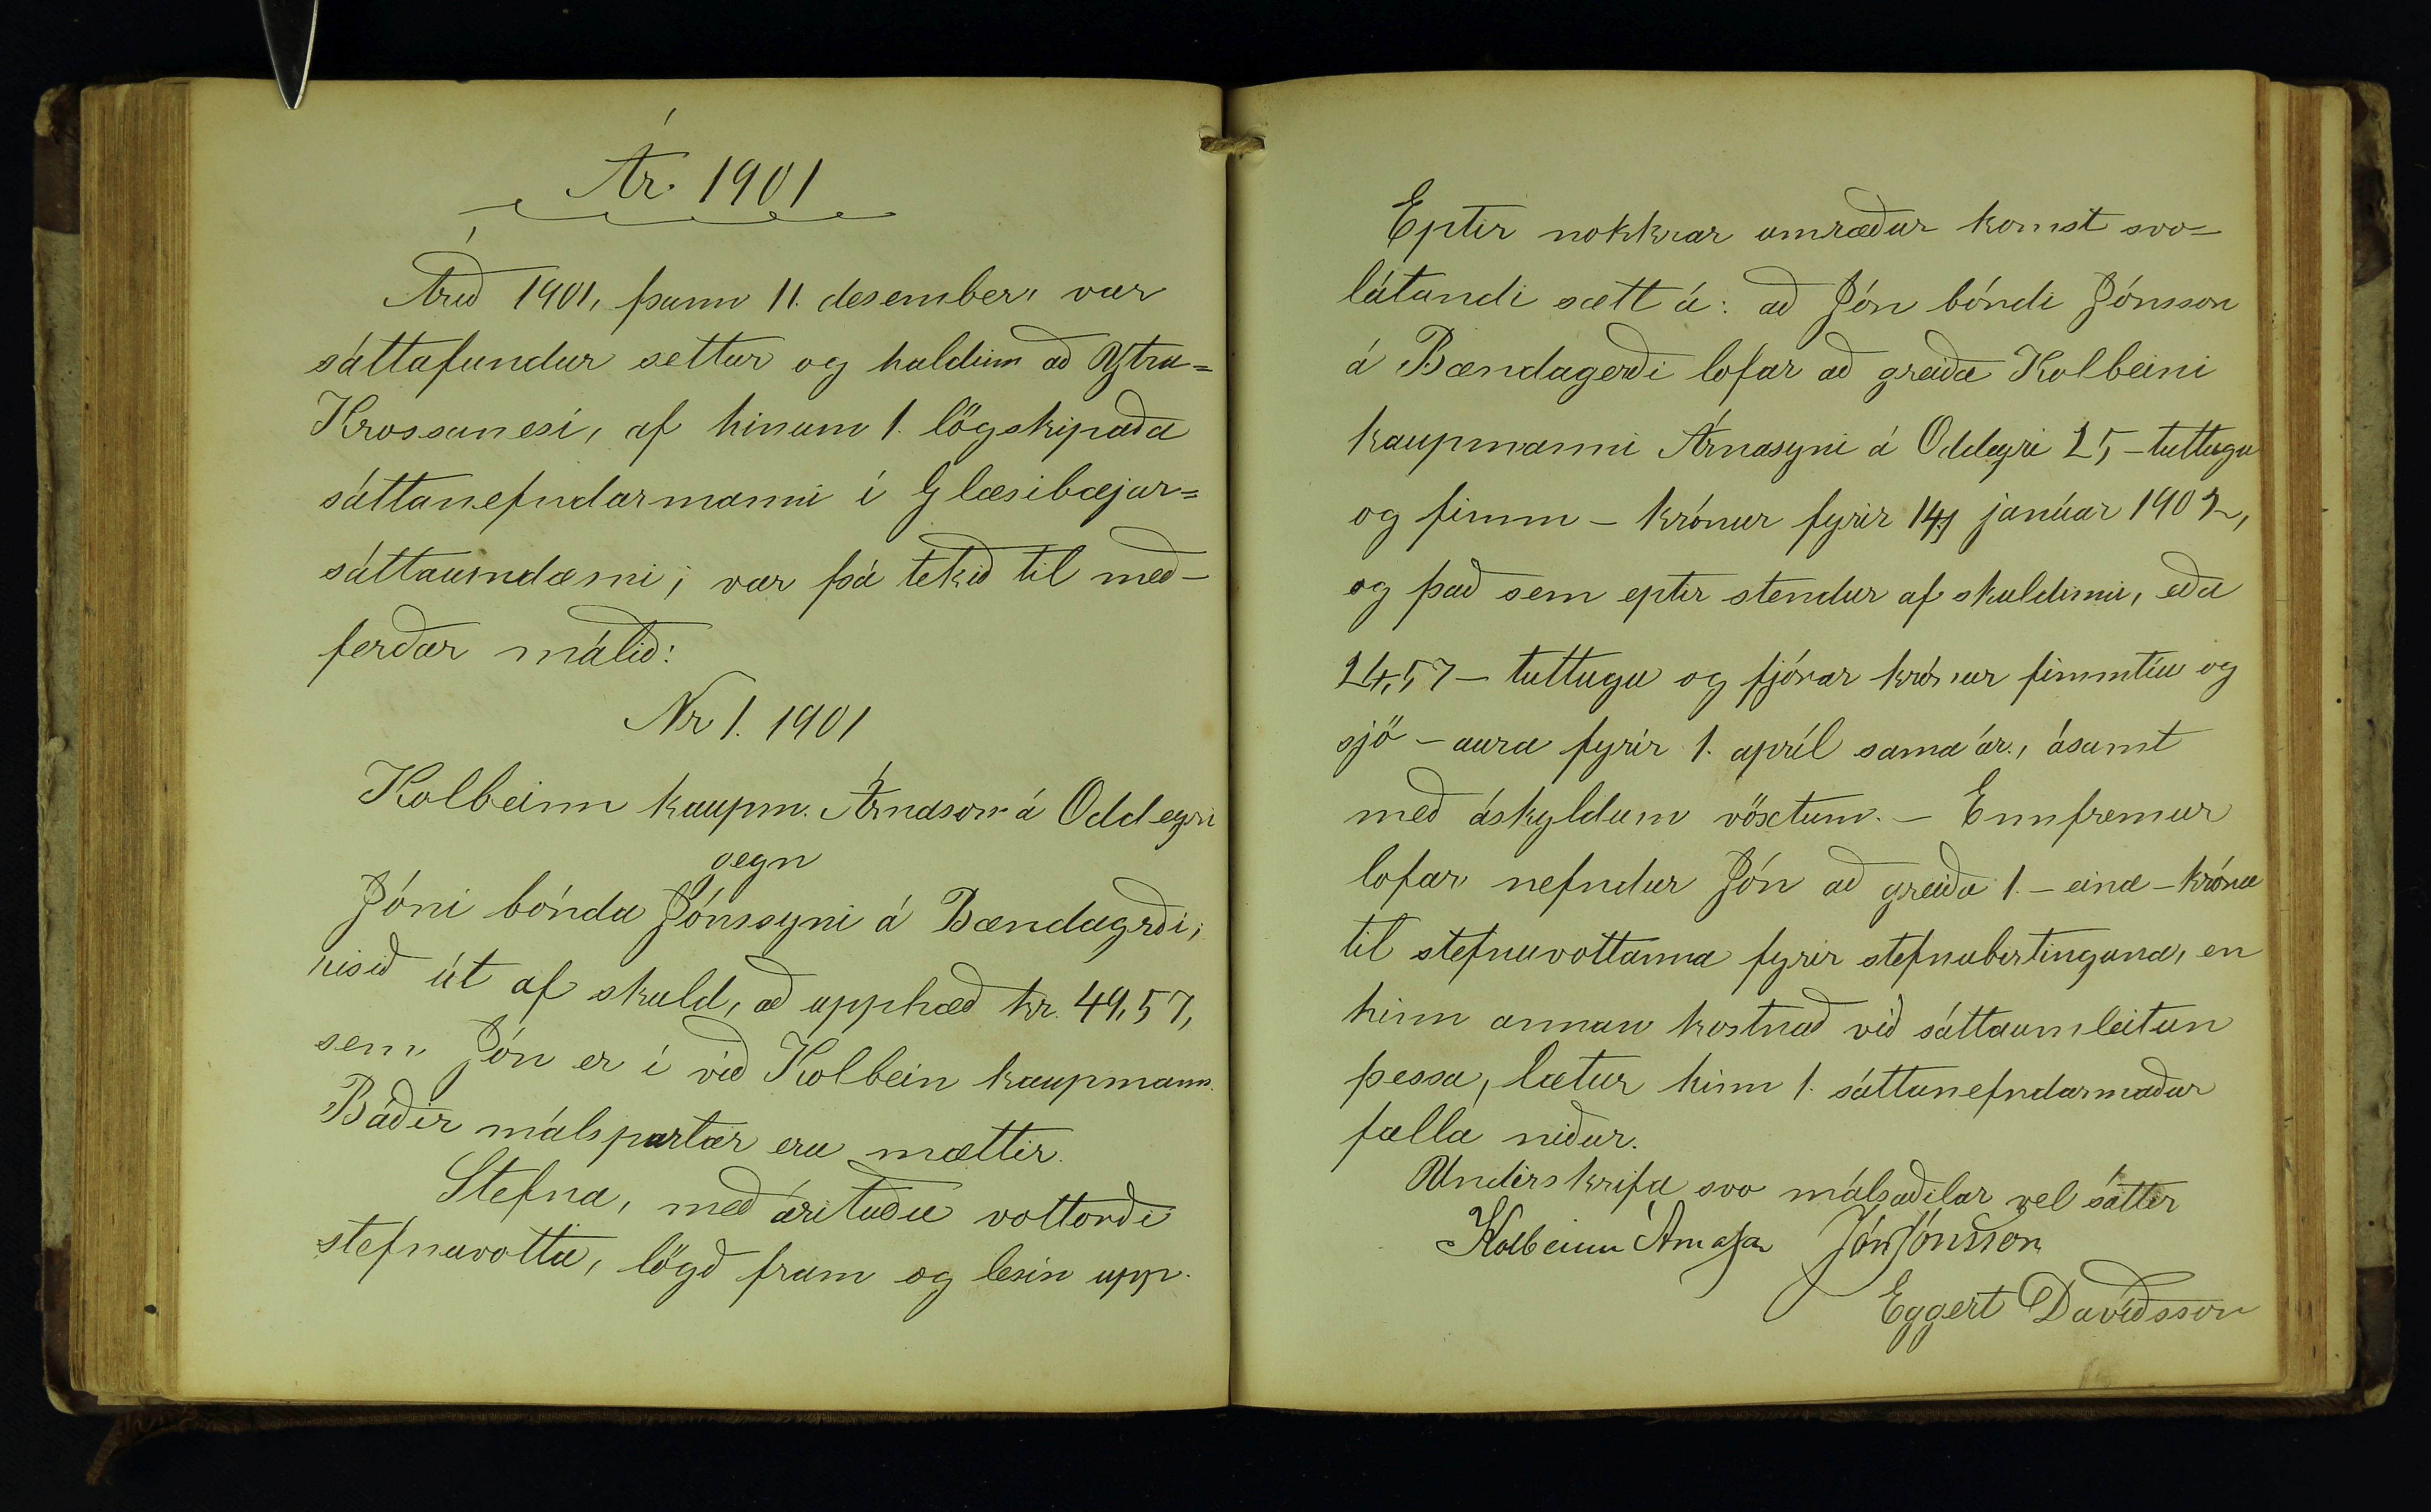 Ár. 1901
Árið 1901, þann 11. desember, var
sáttafundur settur og haldinn að Ytra=
Krossanesi, af hinum 1. lögskipaða
sáttanefndarmanni í Glæsibæjar=
sáttaumdæmi; var þá tekið til með-
ferðar málið:
Nr 1. 1901
Kolbeinn kaupm. Árnason á Oddeyri
gegn
Jóni bónda Jónssyni á Bændagrði,
risið út af skuld, að upphæð kr. 49,57,
sem Jón er í við Kolbein kaupmann.
Báðir málspartar eru mættir.
Stefna, með árituðu vottorði
stefnuvotta, lögð fram og lesin upp.
Eptir nokkrar umræður komst svo=
látandi sætt á: að Jón bóndi Jónsson
á Bændagerði lofar að greiða Kolbeini
kaupmanni Árnasyni á Oddeyri 25 - tuttugu
og fimm - krónur fyrir 14. janúar 1902,
og það sem eptir stendur af skuldinni, eða
24,57 - tuttugu og fjórar krónur fimmtíu og
sjö - aura fyrir 1. apríl sama ár., ásamt
með áskyldum vöxtum. - Ennfremur
lofar nefndur Jón að greiða 1. - eina - krónu
til stefnuvottanna fyrir stefnubirtinguna, en
hinn annan kostnað við sáttaumleitun
þessa, lætur hinn 1. sáttanefndarmaður
falla niður.
Undirskrifa svo málsaðilar vel sáttir
Kolbeinn Árnason Jón Jónsson
Eggert Davíðsson